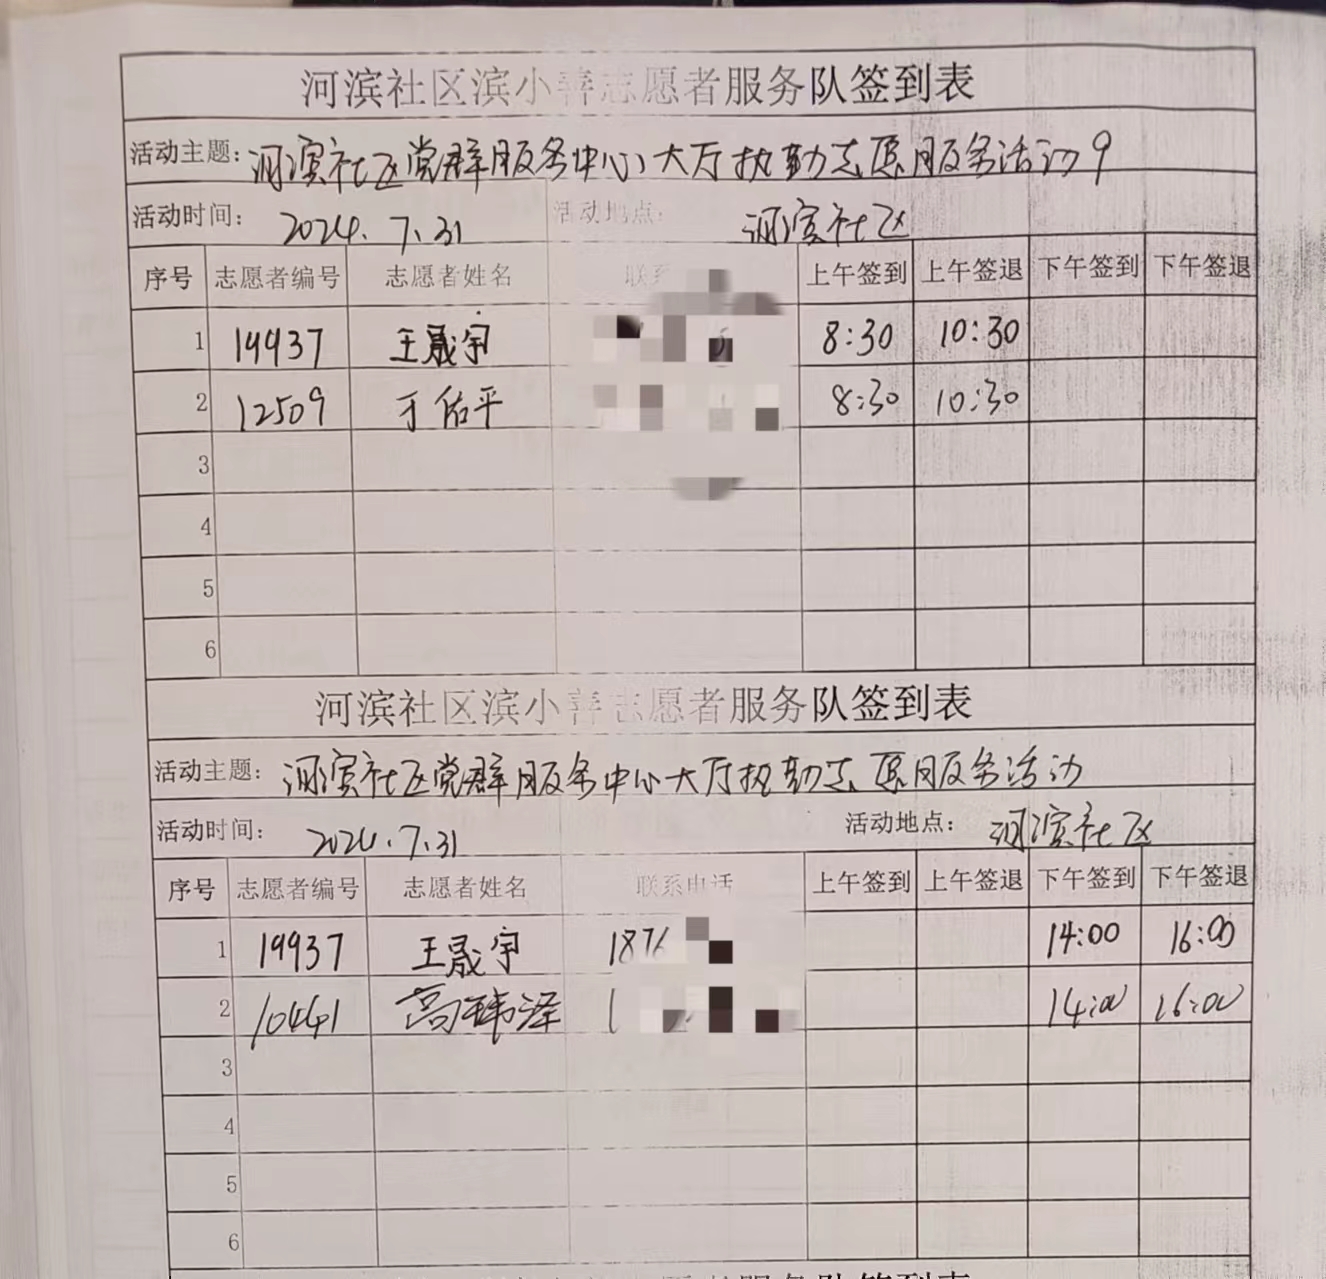 河滨社区滨小善志愿者服务队签到表
活动主题：河滨社区党群服务中心大厅执勤志愿服务活动9
活动时间： 2024.7.31 活动地点： 河滨社区
序号 志愿者编号 志愿者姓名 联系 上午签到 上午签退 下午签到 下午签退
1 19937 王晟宇 8:30 10:30
2 12509 于佑平 8:30 10:30
3
4
5
6
河滨社区滨小善志愿者服务队签到表
活动主题： 河滨社区党群服务中心大厅执勤志愿服务活动
活动时间： 2024.7.31 活动地点： 河滨社区
序号 志愿者编号 志愿者姓名 联系电话 上午签到 上午签退 下午签到 下午签退
1 19937 王晟宇 1876 14:00 16:00
2 10441 高玮泽 1 14:00 16:00
3
4
5
6